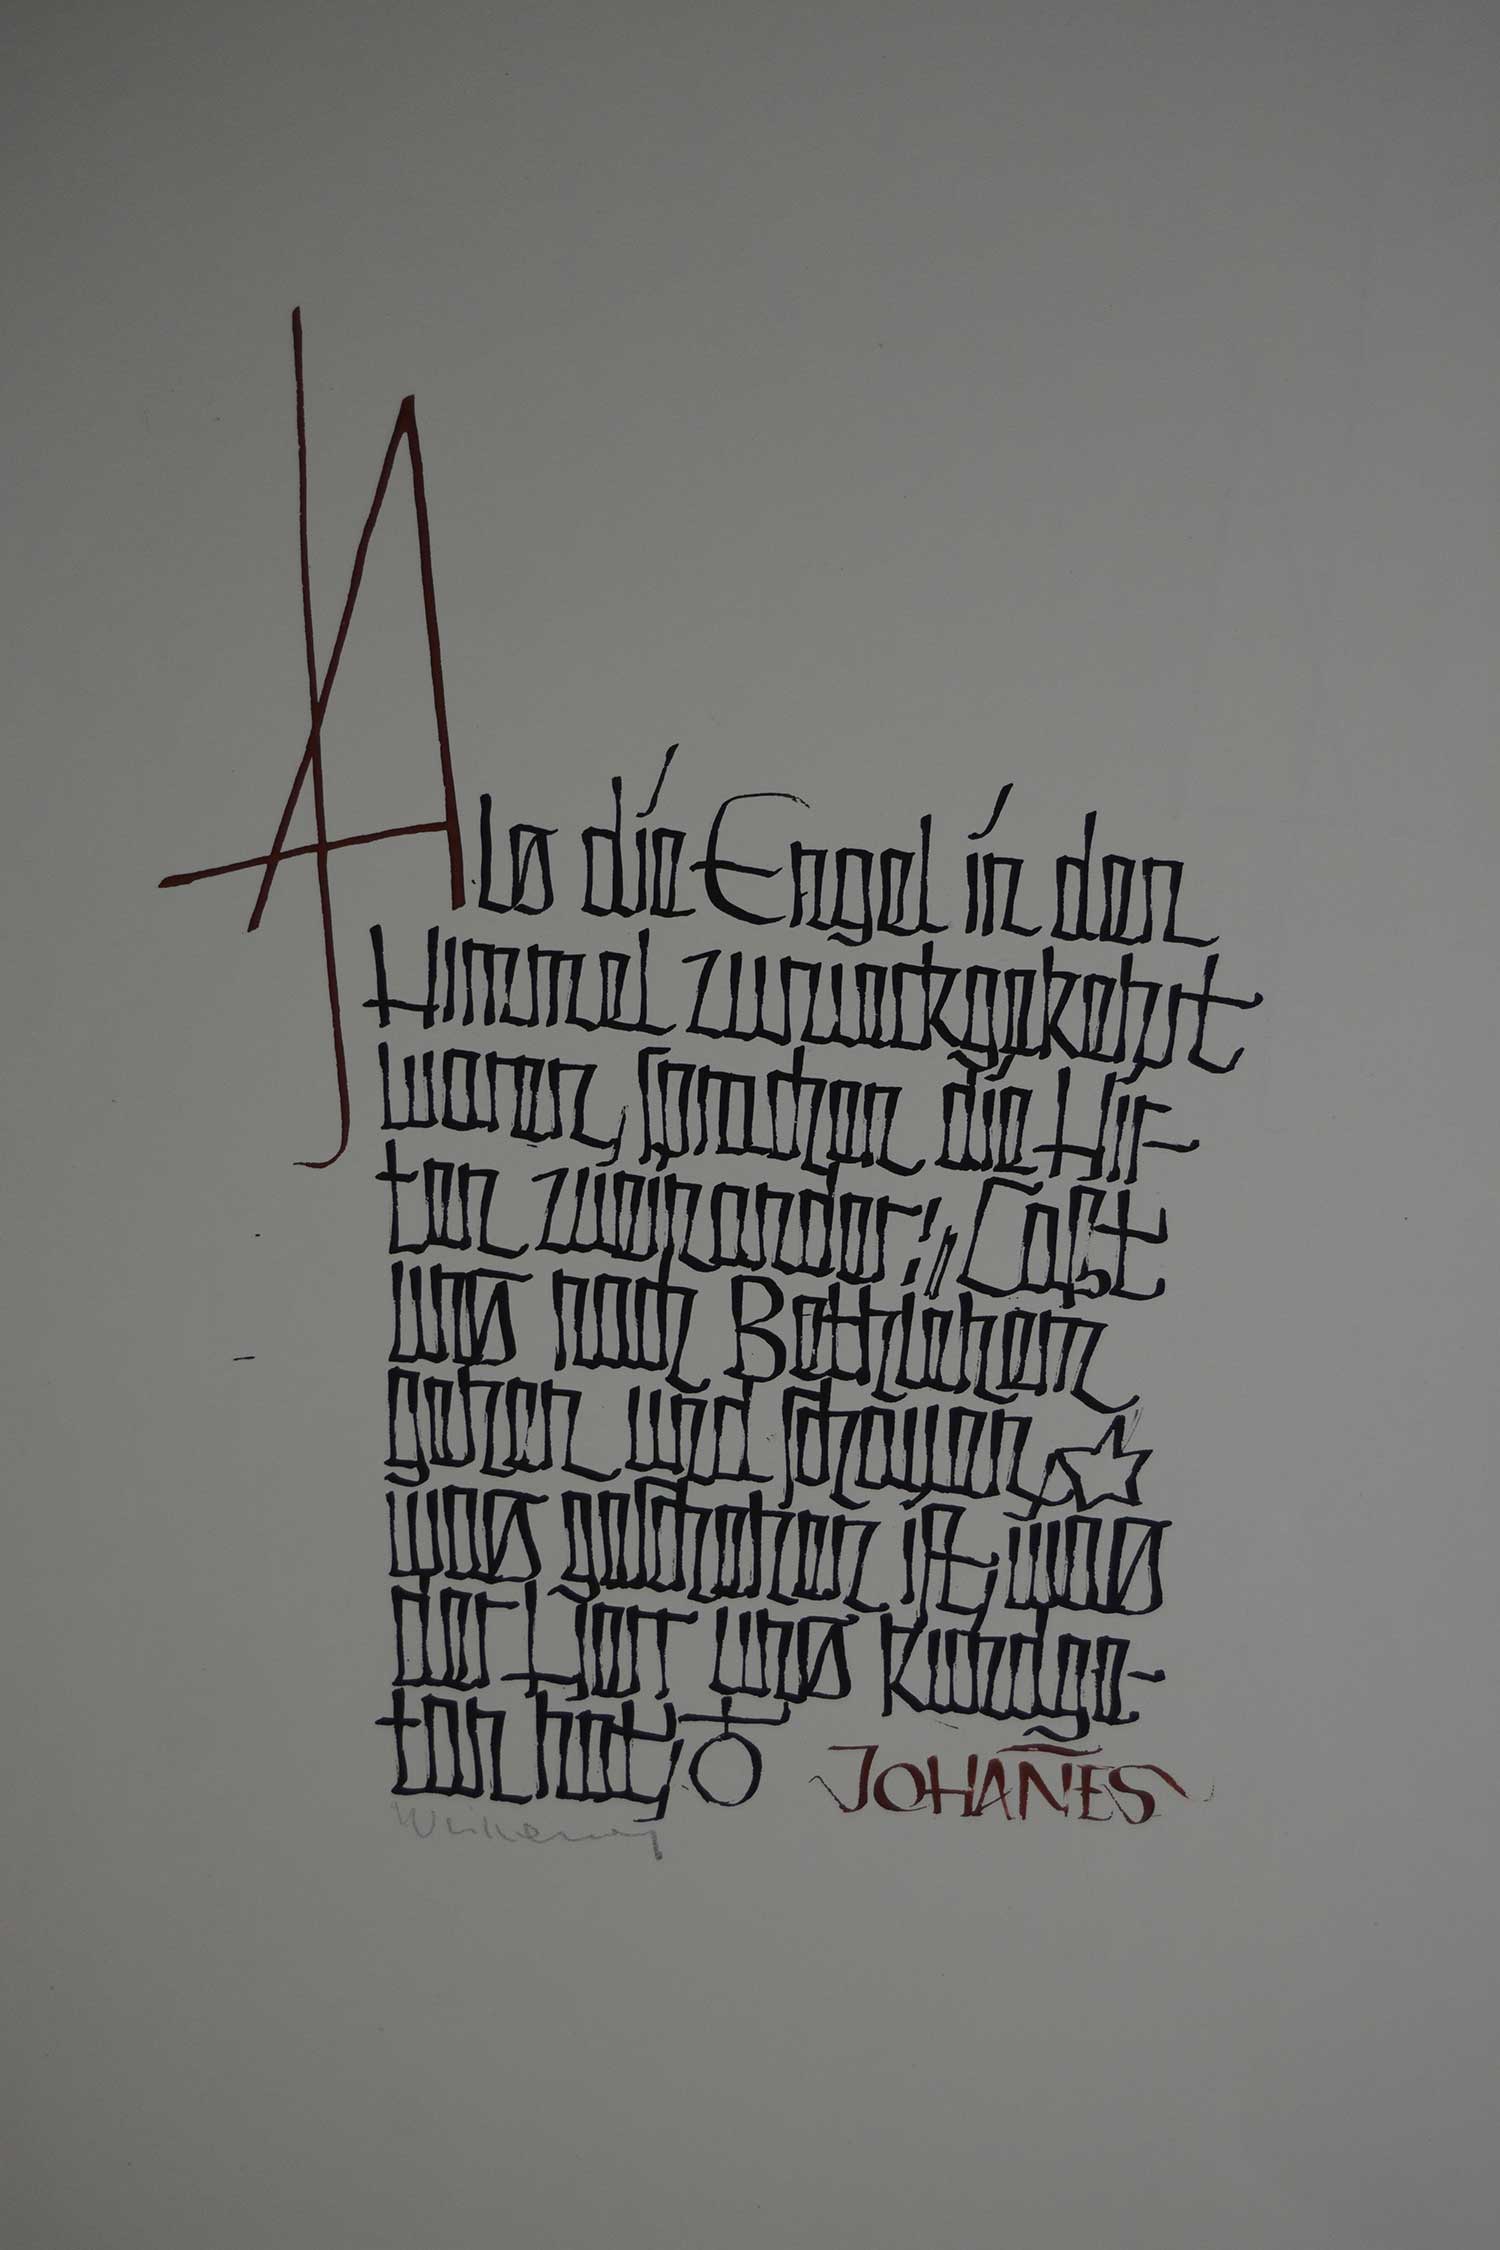 Als die Engel in den
Himmel zurueckgekehrt
waren, sprachen die Hir-
ten zueinander: Laßt
uns nach Bethlehem
gehen und schauen,
was geschehen ist, was
der Herr uns kundge-
tan hat,
JOHAÑES